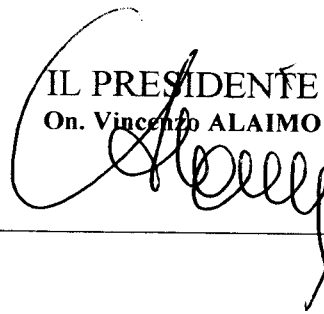 IL PRESIDENTE
On. Vincenzo ALAIMO